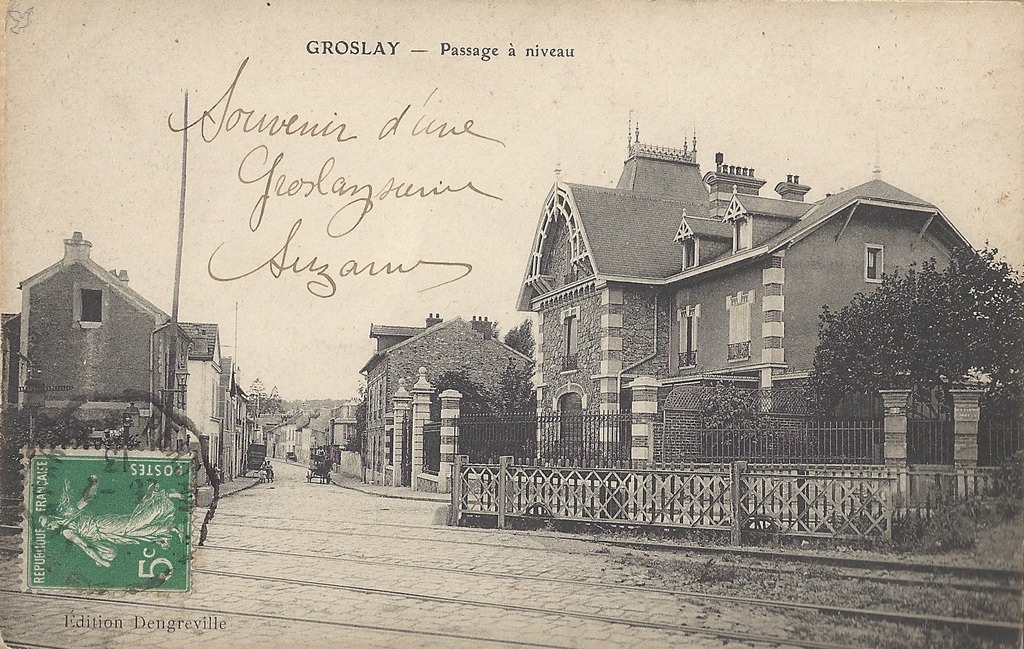 GROSLAY — Passage à niveau
Souvenir d'une
Groslaysienne
Suzanne
POSTES
REPUBLIQUE FRANÇAISE
5c
Édition Dengreville